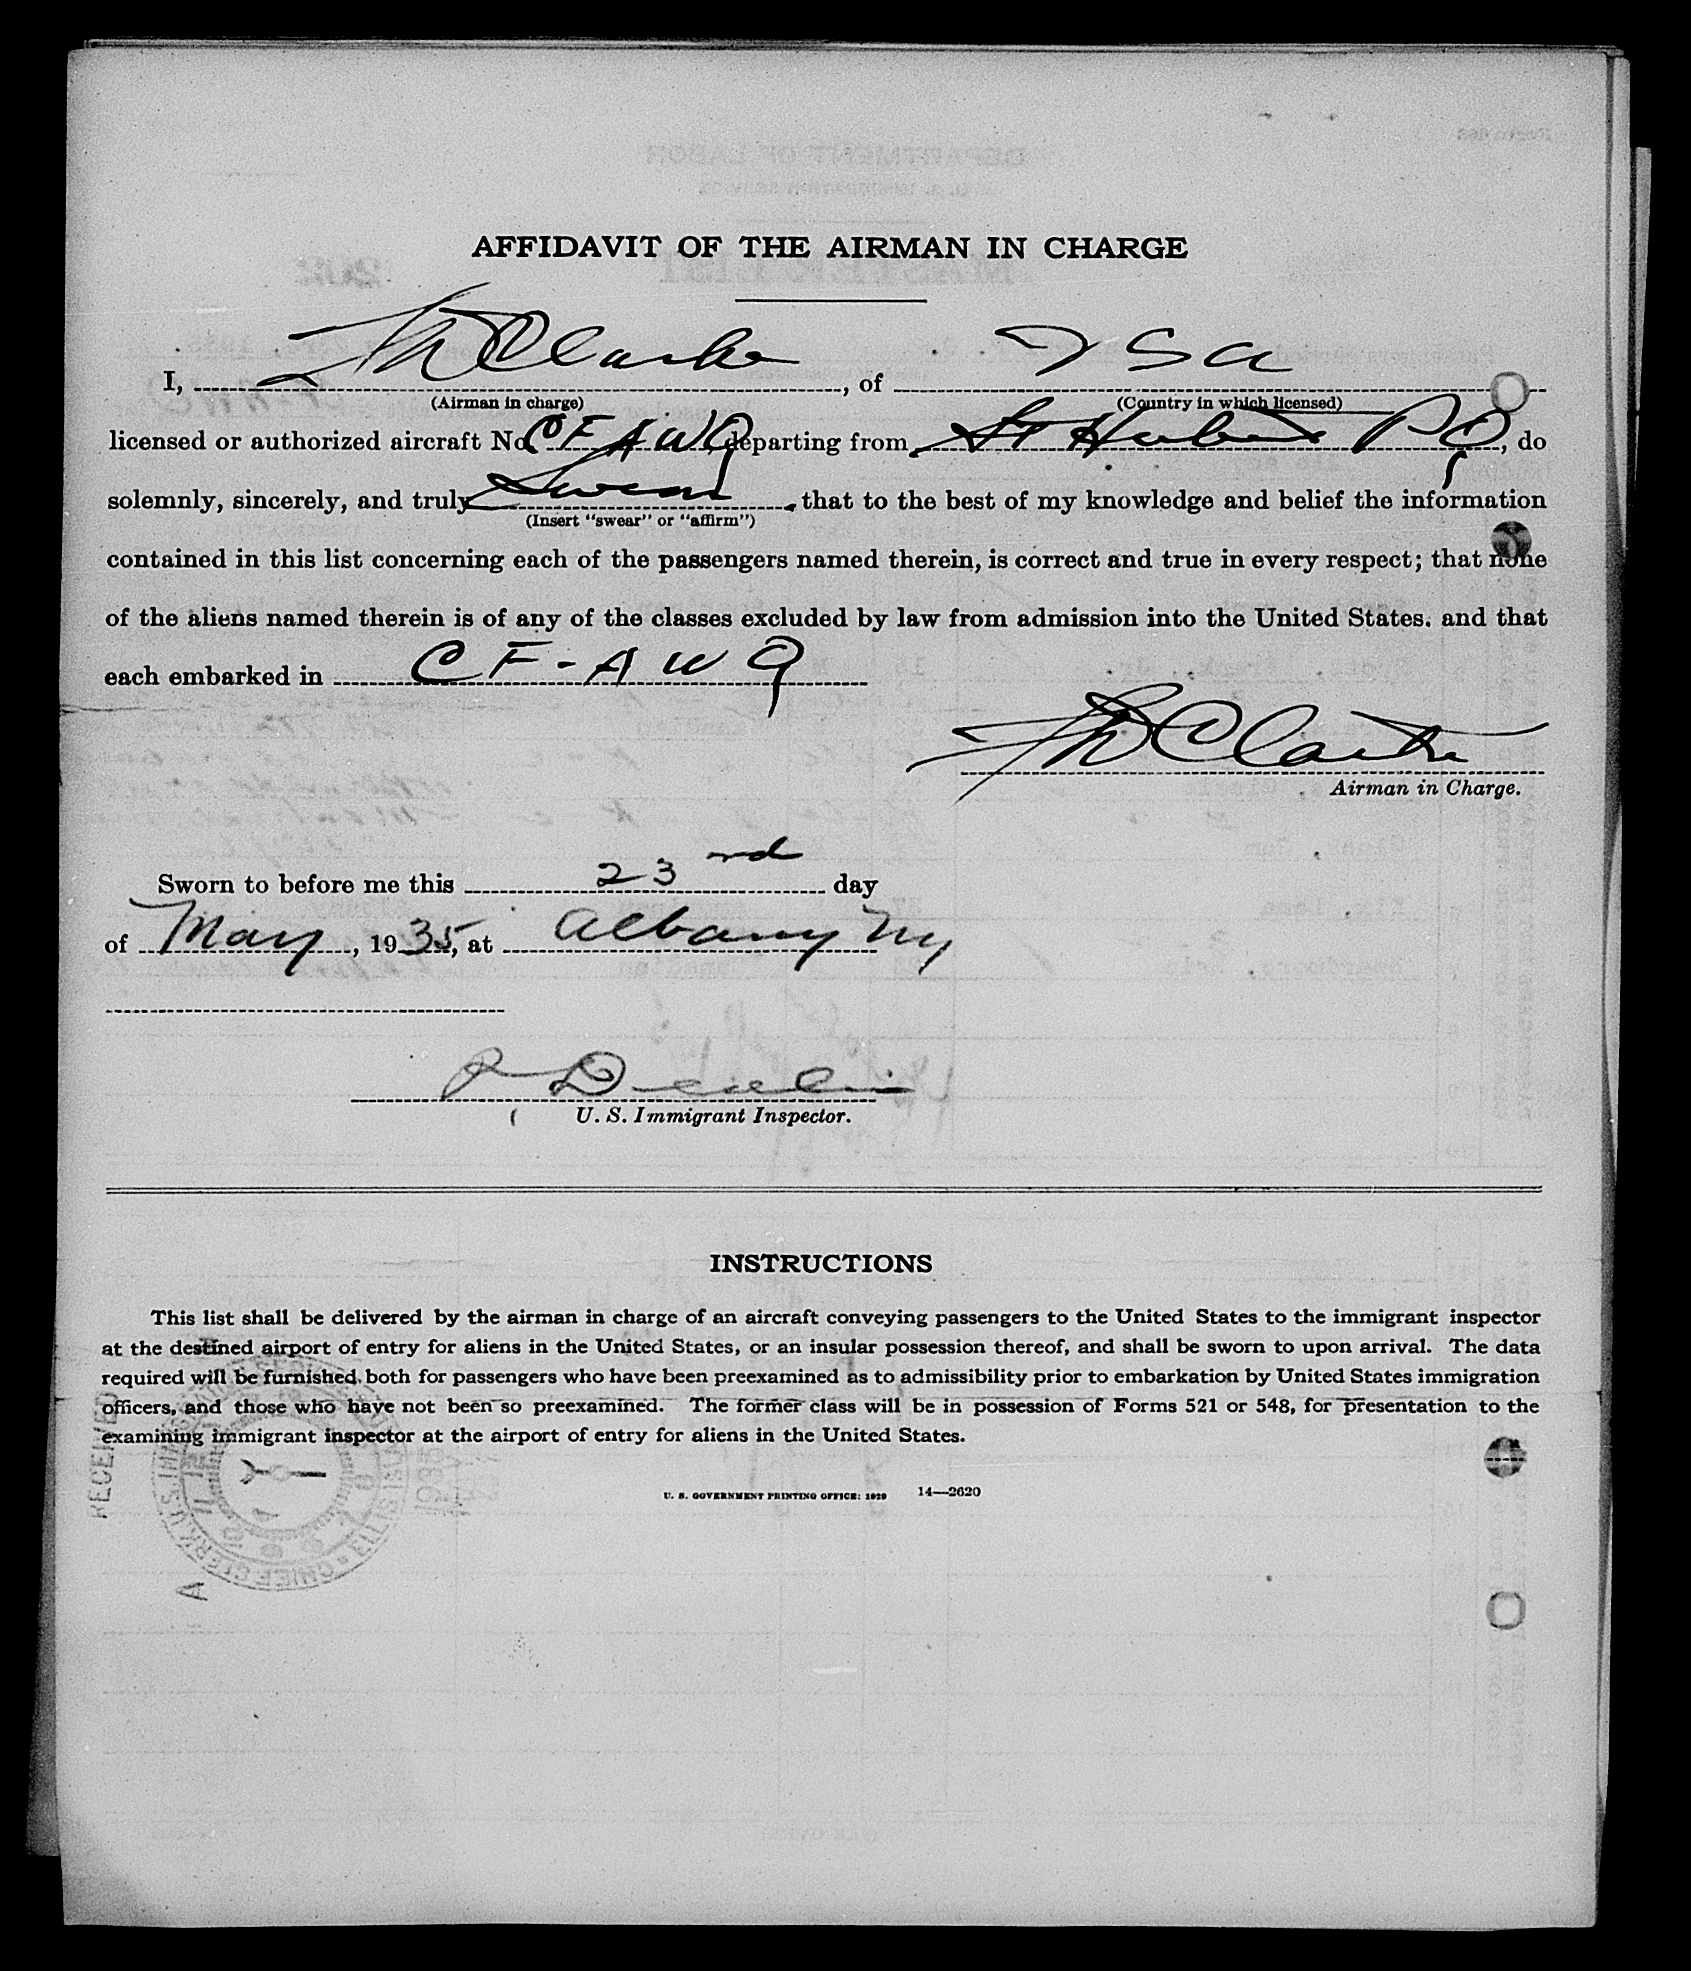 AFFIDAVIT OF THE AIRMAN IN CHARGE
I, Clarke, of USA
(Airman in charge) (Country in which licensed)
licensed or authorized aircraft No. CF AWQ departing from St Hubert PQ, do
solemnly, sincerely, and truly Swear, that to the best of my knowledge and belief the information
(Insert "swear" or "affirm")
contained in this list concerning each of the passengers named therein, is correct and true in every respect; that none
of the aliens named therein is of any of the classes excluded by law from admission into the United States. and that
each embarked in CF-AWQ
Clarke
Airman in Charge.
Sworn to before me this 23rd day
of May, 1935, at Albany Ny
U. S. Immigrant Inspector.
INSTRUCTIONS
This list shall be delivered by the airman in charge of an aircraft conveying passengers to the United States to the immigrant inspector
at the destined airport of entry for aliens in the United States, or an insular possession thereof, and shall be sworn to upon arrival. The data
required will be furnished, both for passengers who have been preexamined as to admissibility prior to embarkation by United States immigration
officers, and those who have not been so preexamined. The former class will be in possession of Forms 521 or 548, for presentation to the
examining immigrant inspector at the airport of entry for aliens in the United States.
U. S. GOVERNMENT PRINTING OFFICE: 1929 14—2620
RECEIVED